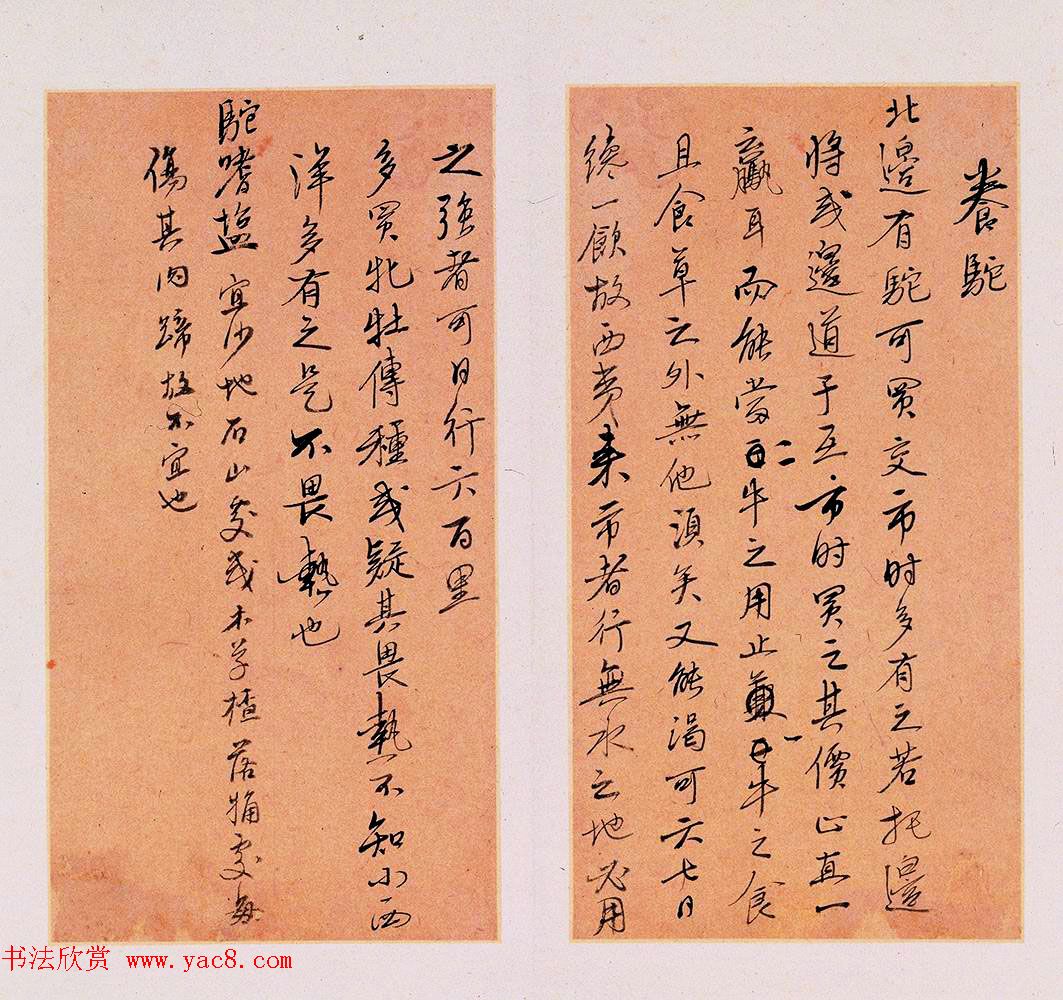 養駝
北邊有駝可買交市时多有之若托邊
將或邊道于互市时買之其價止直一
羸耳而能當二牛之用止兼一牛之食
且食草之外無他須矣又能渴可六七日
纔一飲故西夷来市者行無水之地必用
之强者可日行六百里
多買牝牡傳種或疑其畏熱不知小西
洋多有之是不畏熱也
駝嗜塩宜沙地石山處或木竽楂落桷處每
傷其肉蹄故不宜也
书法欣赏 www.yac8.com